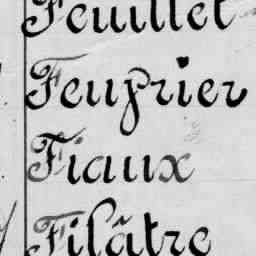 Feuillet
Feuprier
Fiaux
Filâtre